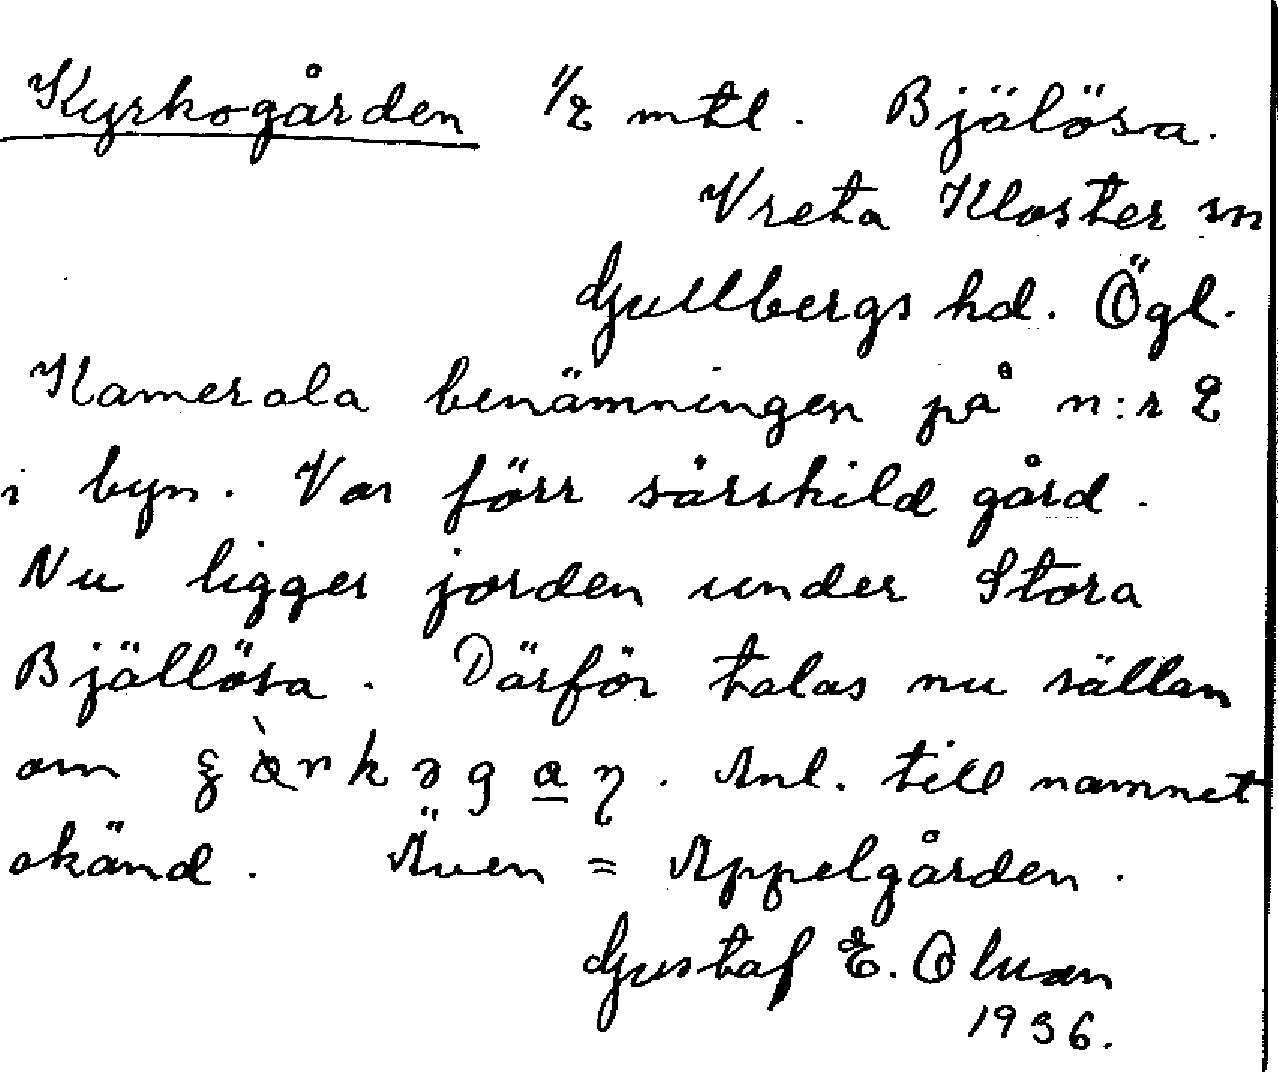 Kyrkogården 1/2 mtl. Bjälösa.
Vreta Kloster sn
Gullbergs hd. Ögl.
Kamerala benämningen på n:r 2
i byn. Var förr särskild gård.
Nu ligger jorden under Stora
Bjällösa. Därför talas nu sällan
om . Anl. till namnet
okänd. Även = Appelgården.
Gustaf E. Olsson
1936.